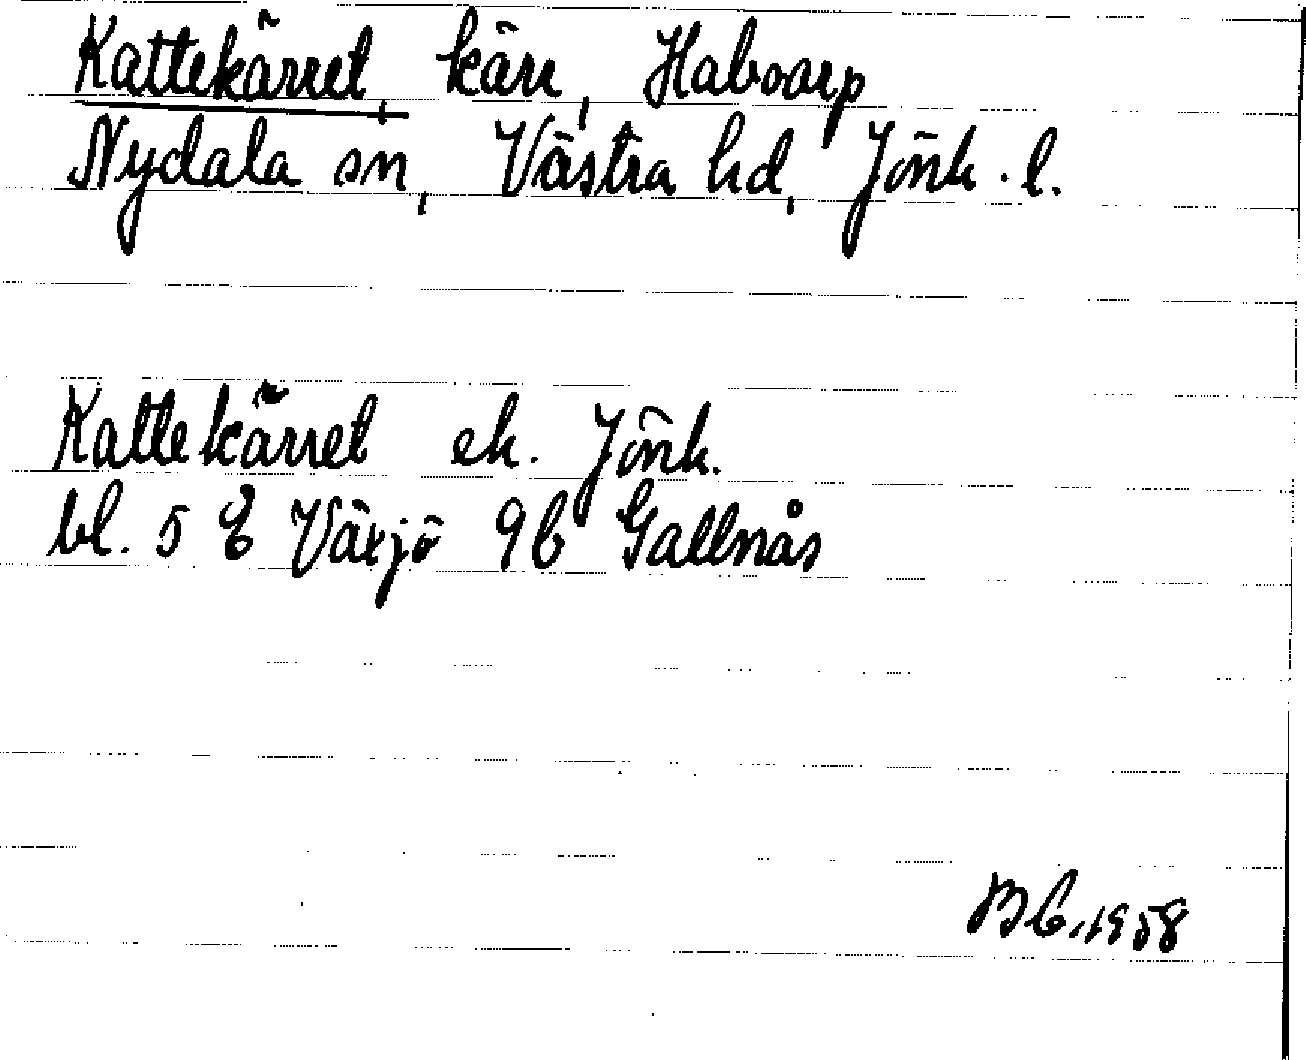 Kattekärret, kärr, Haboarp
Nydala sn, Västra hd, Jönk. l.
Kattekärret ek. Jönk.
bl. 5 E Växjö 9b Gallnås
BC, 1958